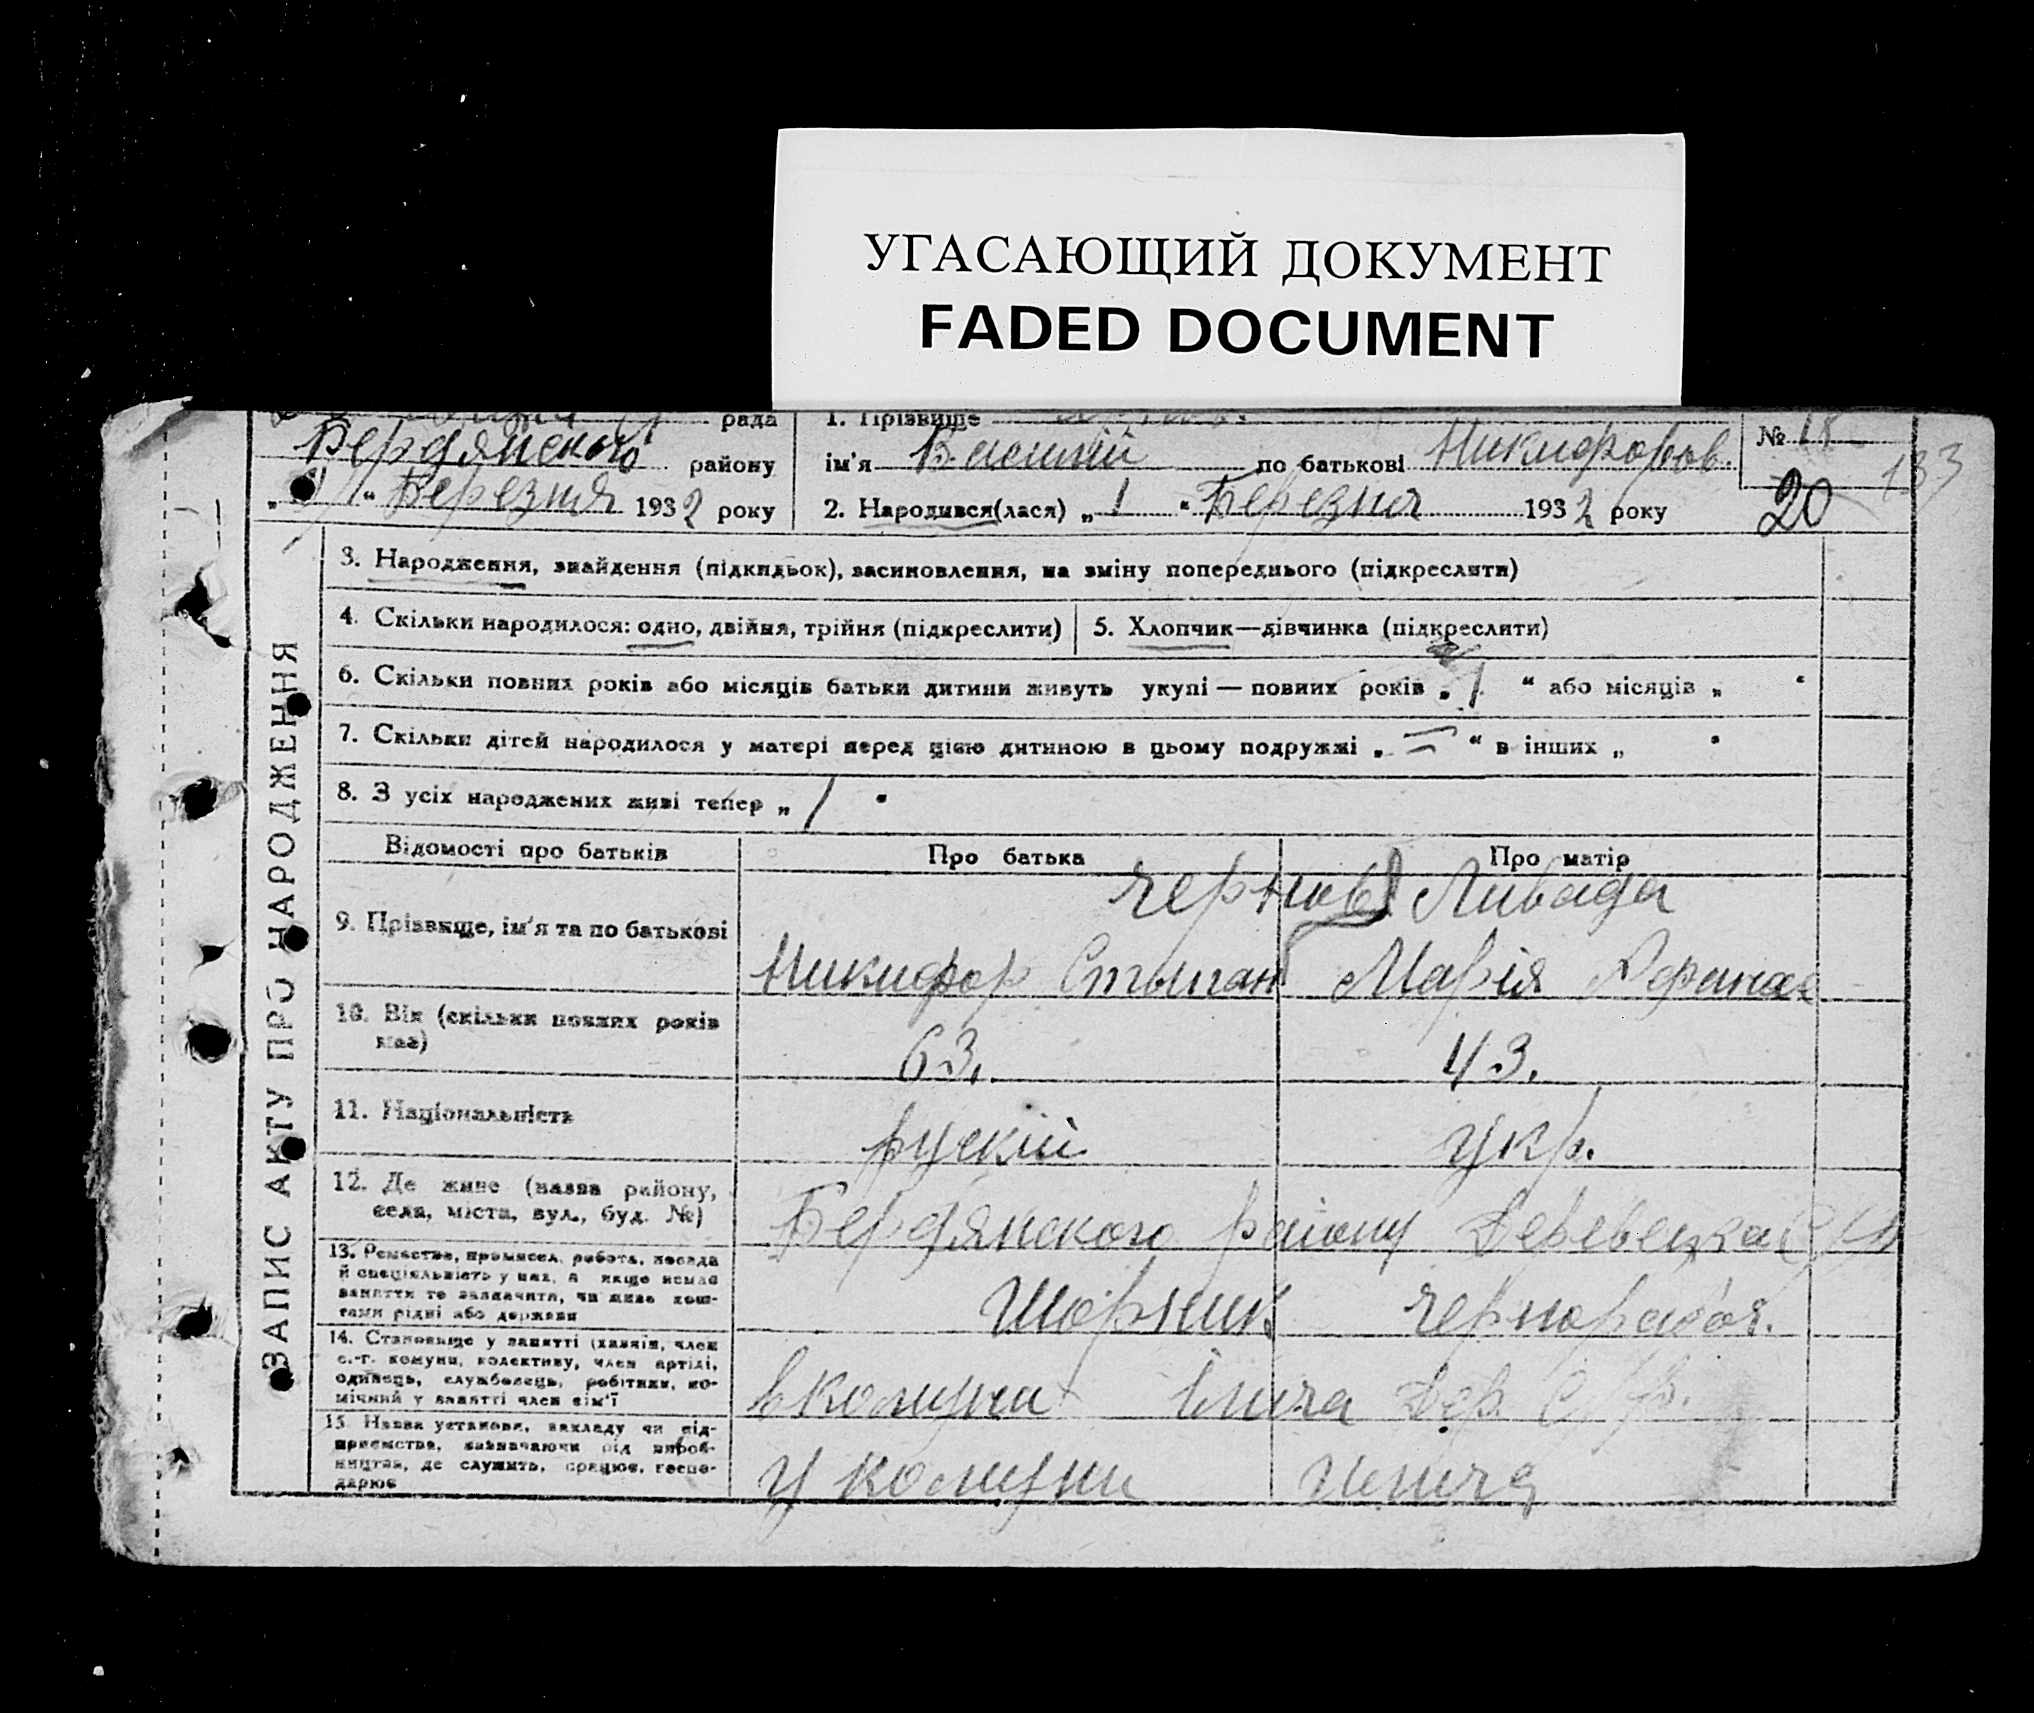 УГАСАЮЩИЙ ДОКУМЕНТ
FADED DOCUMENT
рада
Бердянского району
“ Березня 1932 року
1. Прізвище
ім'я Василий по батькові Никифоров.
2. Народився(лася) „ 1 “ Березня 1932 року
№ 18
133
20
ЗАПИС АКТУ ПРО НАРОДЖЕННЯ
3. Народження, знайдення (підкидьок), засиновлення, на зміну попереднього (підкреслити)
4. Скільки народилося: одно, двійня, трійня (підкреслити)
5. Хлопчик—дівчинка (підкреслити)
6. Скільки повних років або місяців батьки дитини живуть укупі — повних років „ 1 “ або місяців „ “
7. Скільки дітей народилося у матері перед цією дитиною в цьому подружжі „ — “ в інших „ “
8. З усіх народжених живі тепер „ 1 “
Відомості про батьків
Про батька
Про матір
9. Прізвище, ім'я та по батькові
Чернов Ливада
Никифор Марія
10. Вік (скільки повних років
має)
63.
43.
11. Національність
рускій
укр.
12. Де живе (назва району,
села, міста, вул., буд. №)
Бердянского району
13. Ремество, промисел, робота, посада
й спеціяльність у них, а якщо немає
заняття то зазначити, чи живе кош-
тами рідні або держави
Шорник
чернорабоч.
14. Становище у занятті (хазяїн, член
с.-г. комуни, колективу, член артілі,
одинець, службовець, робітник, по-
мічний у занятті член сім'ї
в комуни Ілича Дер. С/р.
15. Назва установи, закладу чи під-
приємства, зазначаючи рід вироб-
ництва, де служить, працює, госпо-
дарює
у комуни Илича